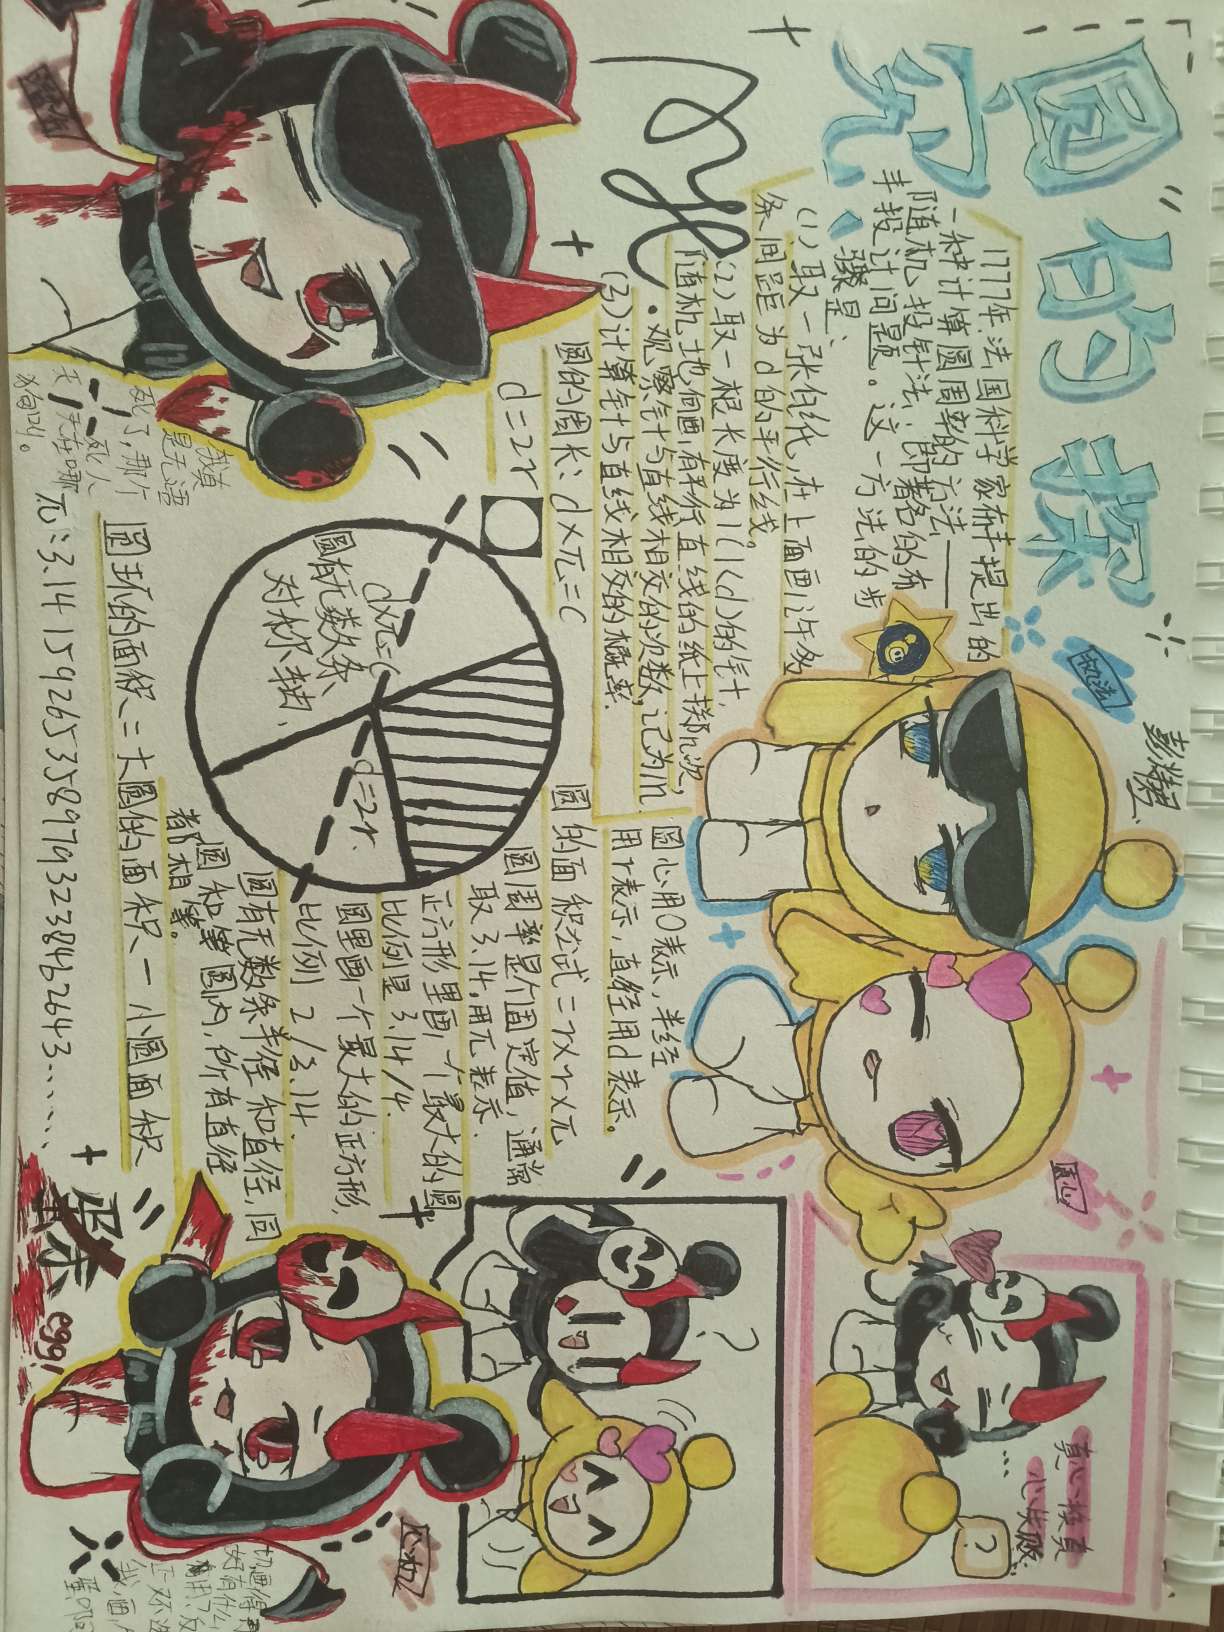 圆的探
究
1777年法国科学家布丰提出的
一种计算圆周率的方法——
随机投针法,即著名的布
丰投针问题。这一方法的步
骤是:
(1)取一张白纸,在上面画许多
条间距为d的平行线。
(2)取一根长度为l(l<d)的针,
随机地向画有平行直线的纸上掷n次,
观察针与直线相交的次数,记为m
(3)计算针与直线相交的概率.
圆的周长:d×兀=C
d=2r
圆有无数条
对称轴,
d×兀=C
d=2r.
圆心用O表示,半径
用r表示,直径用d表示。
圆的面积公式=r×r×兀
圆周率是个固定值,通常
取3.14,用兀表示.
正方形里画一个最大的圆
比例是3.14/4.
圆里画一个最大的正方形,
比例2/3.14.
圆有无数条半径和直径,同
圆和等圆内,所有直径
都相等。
圆环的面积=大圆的面积-小圆面积
兀:3.14159265358979323846 2643……
真心换真
心
?
?
圆心
egg!
我真
是无语
死了,那个